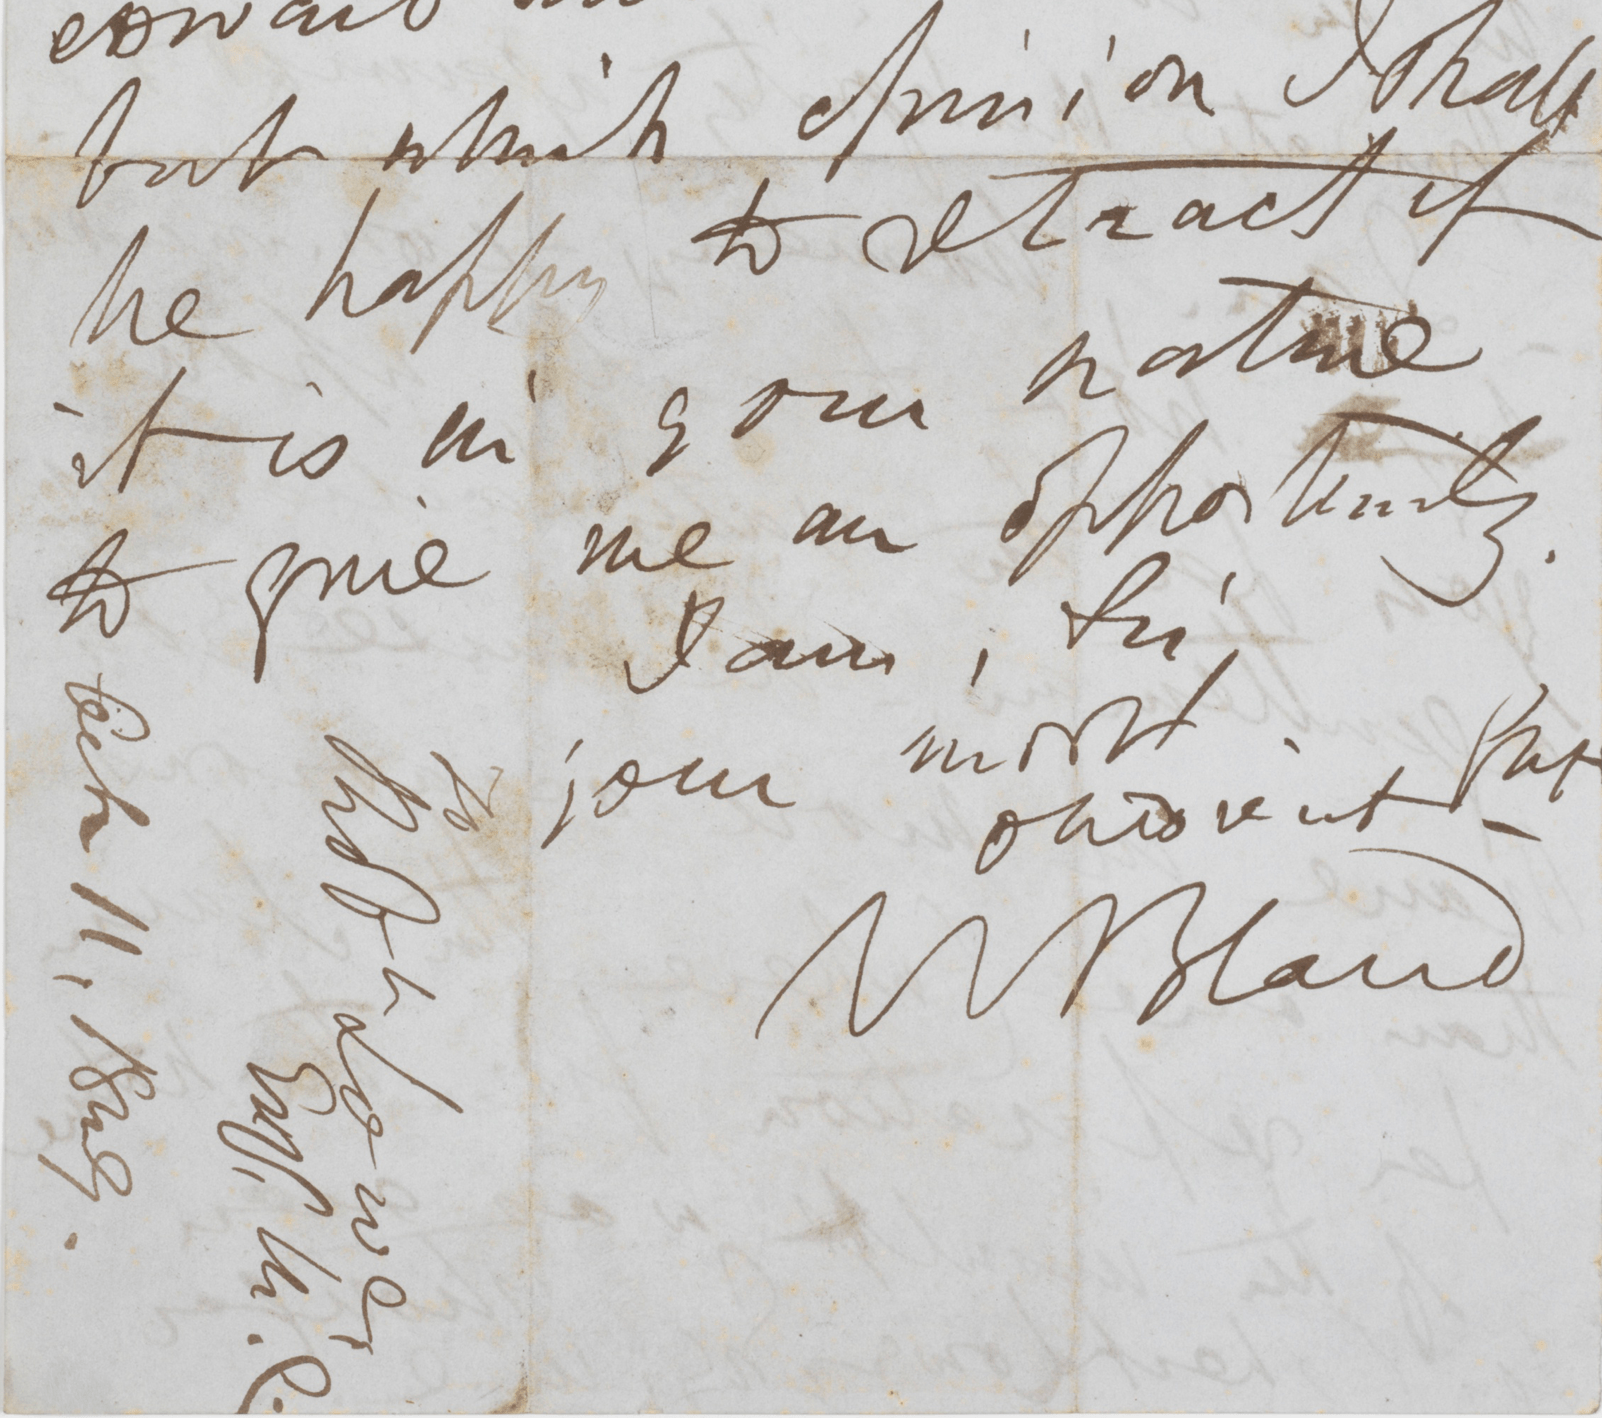 coward
but which opinion I shall
be happy to retract if
it is in your nature
to give me an opportunity.
I am, Sir,
your most
obedient Servt
W Bland
To
Robert Lowe,
Esqr, M.C.
Octr 11, 1849.